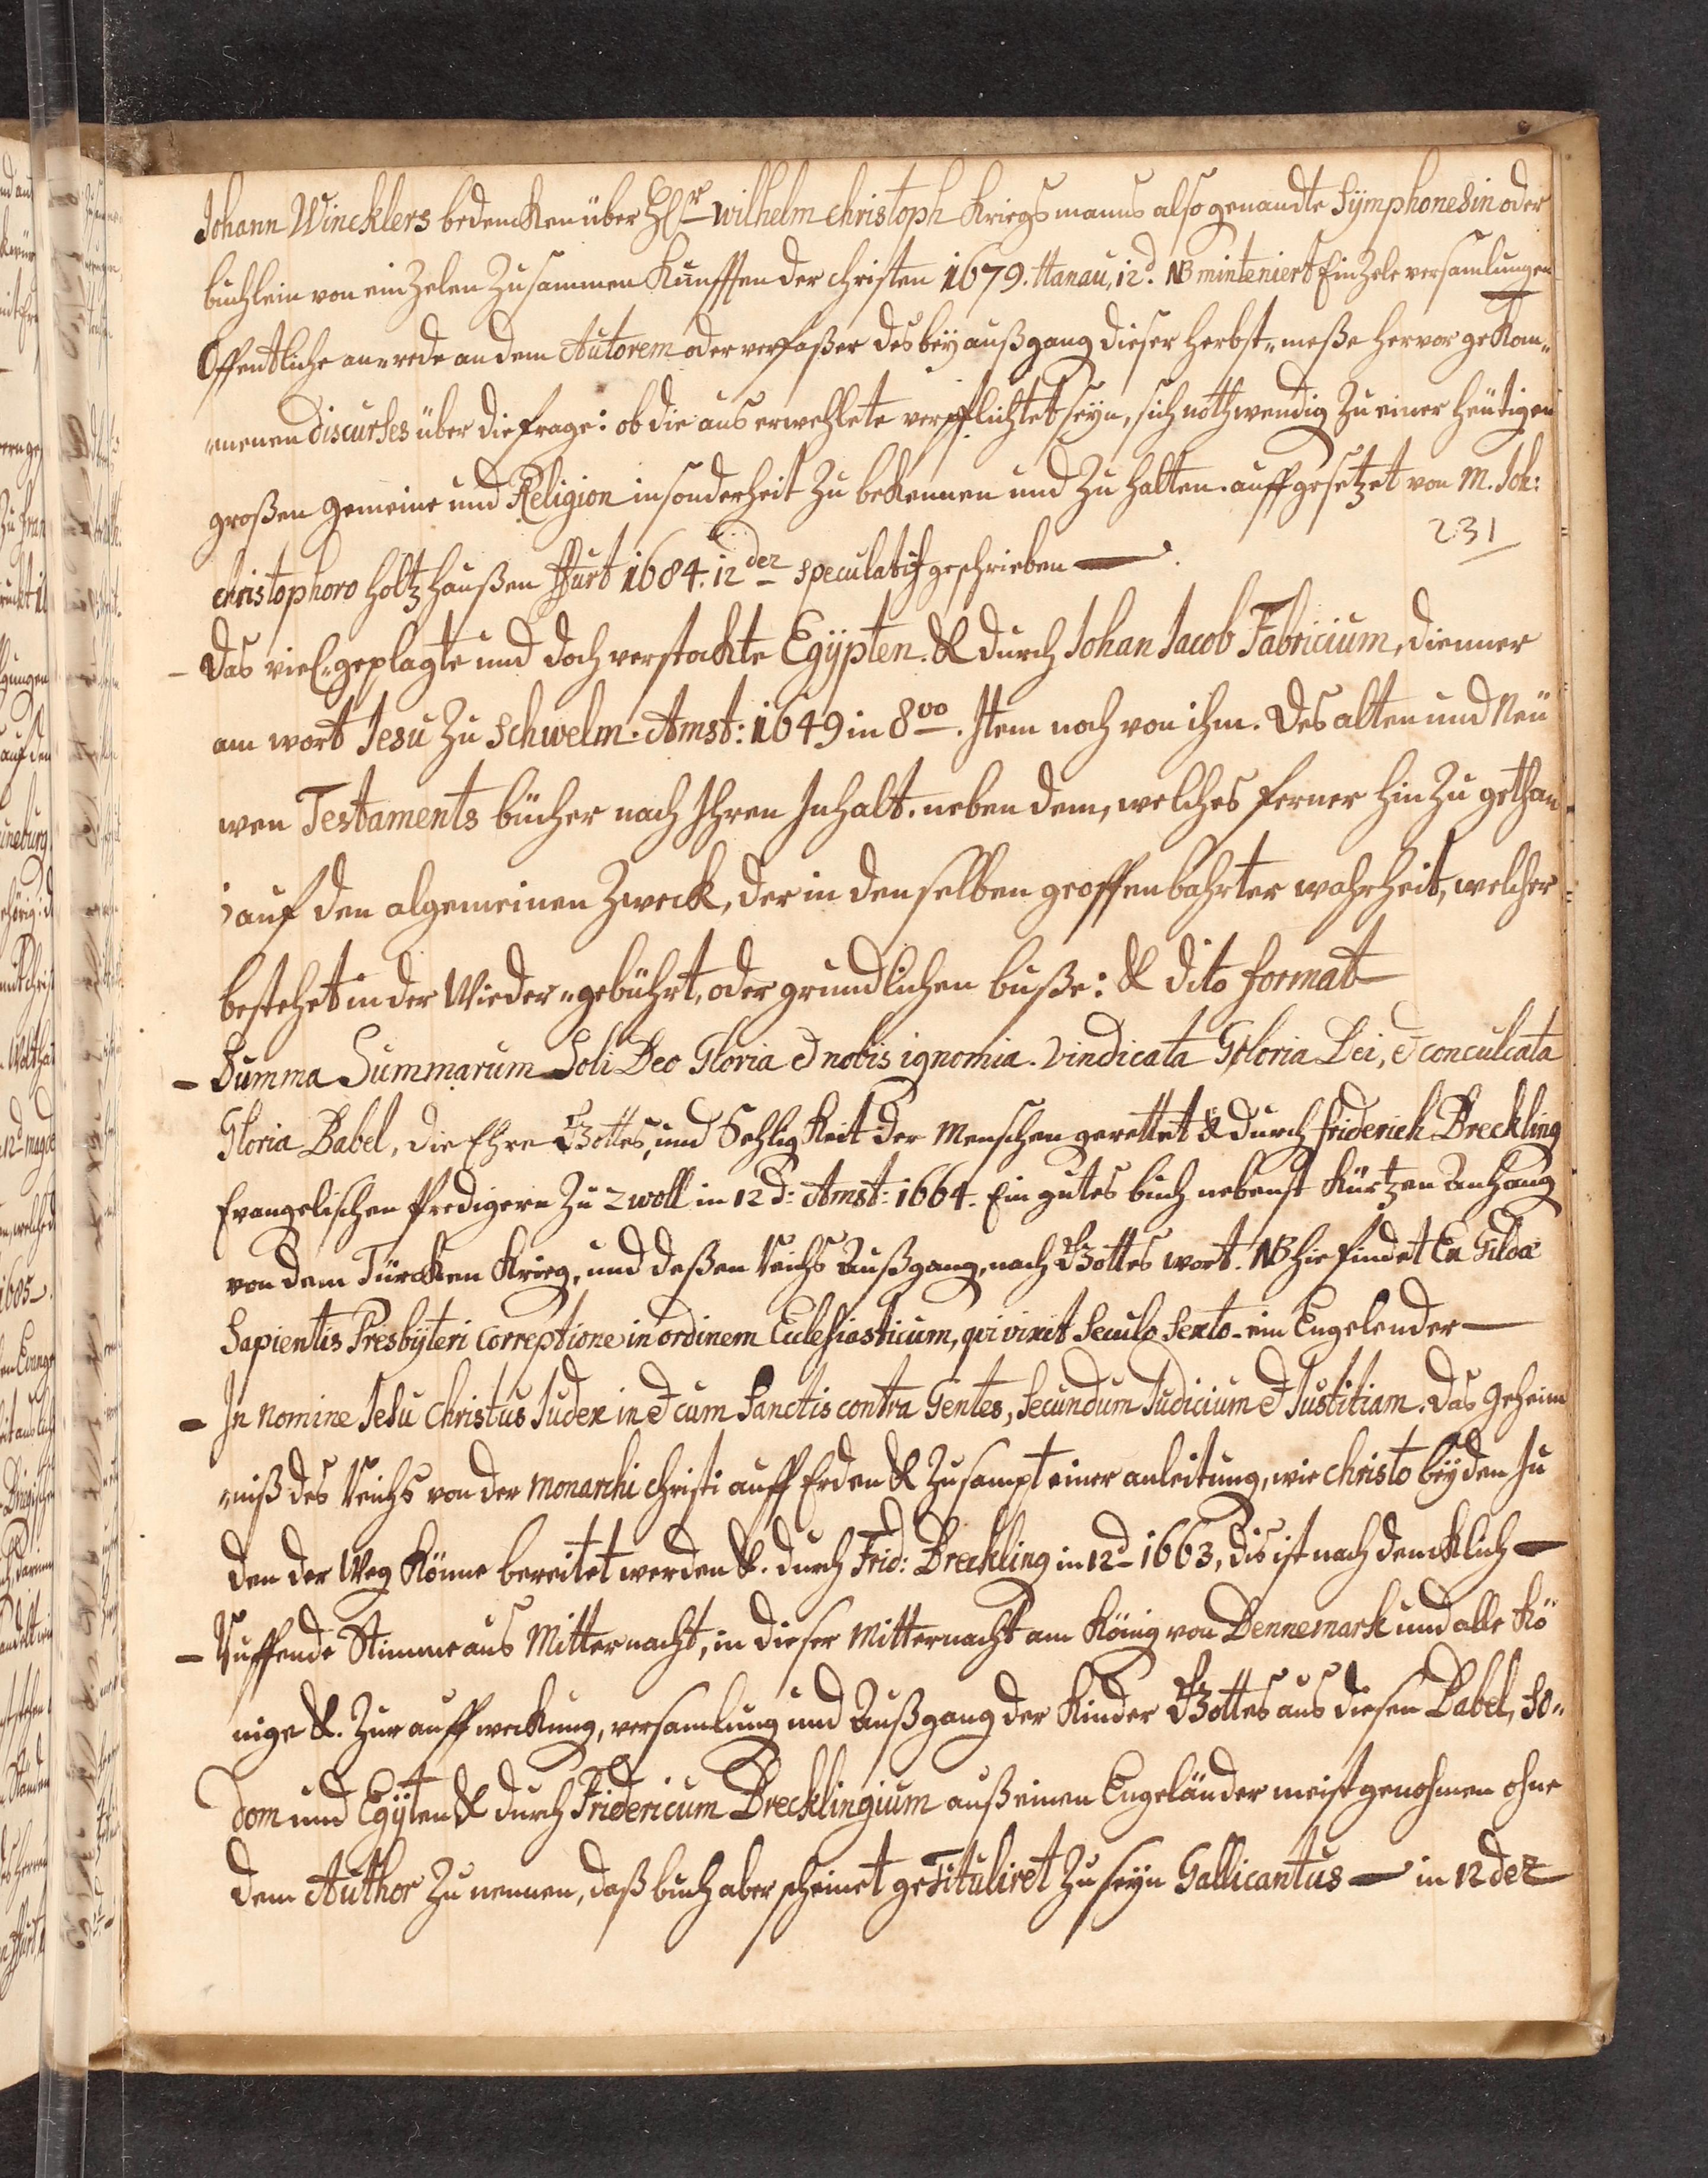 Johann Wincklers bedencken über H. wilhelm christoph Kriegs manns also genandte Sÿmphonesin oder
buchlein von einzelen Zusammen Kunfften der christen 1679. Hanau, 12d. NB minteniert Einzele versamlungen
Offentliche an-rede an dem Autorem oder verfaßer des beÿ außgang dieser herbst-meße hervor gekom-
menen discurses über die frage: ob die aus erwehlete verpflichtet seÿn, sich nothwendig zu einer heutigen
großen gemeine und Religion insonderheit zu bekennen und zu halten. auffgesetzet von M. Joh:
231
christophoro holtzhaußen ffurt 1684. 12dez speculatif geschrieben —
– Das viel-geplagte und doch verstockte Egÿpten. & durch Johan Jacob Fabricium, dienner
am wort Jesu zu Schwelm. Amst: 1649 in 8vo. Item noch von ihm. Des alten und Neü
wen Testaments bücher nach Ihren Inhalt. neben dem, welches ferner hinzu gethan
auf den algemeinen Zweck, der in denselben geoffenbahrter wahrheit, welcher
bestehet in der Wieder-gebührt, oder gründlichen buße: & dito format
– Summa Summarum Soli Deo Gloria et nobis ignomia. Vindicata Gloria Dei, et conculcata
Gloria Babel, die Ehre Gottes, und Sehligkeit der Menschen gerettet & durch friderich Breckling
Evangelischen Predigern zu Zwoll in 12d: Amst: 1664. Ein gutes buch nebenst kurtzen Anhang
von dem Türcken Krieg, und deßen Reichs Außgang, nach Gottes wort. NB hie findet Ex Gildæ
Sapientis Presbÿteri Correptione in ordinem Ecclesiasticum, qvi vixit Seculo Sexto - ein Engelender —
– In nomine Jesu Christus Judex in et cum Sanctis contra Gentes, Secundum Judicium et Justitiam. Das geheim
niß des Reichs von der monarchi christi auff Erden & zusampt einer anleitung, wie christo beÿ den Ju
den der Weg könne bereitet werden &. durch Frid: Breckling in 12d 1663, dis ist nach dencklich —
– Ruffende Stimme aus Mitternacht, in dieser Mitternacht am König von Dennemark und alle Kö
nige &. Zur auffweckung, versamlung und Außgang der Kinder Gottes aus diesen Babel, So-
dom und Egÿten & durch Fridericum Brecklingium auß einen Engeländer meist genohmen ohne
dem Author zu nennen, daß buch aber scheinet getituliret zu seÿn Gallicantus — in 12 dez